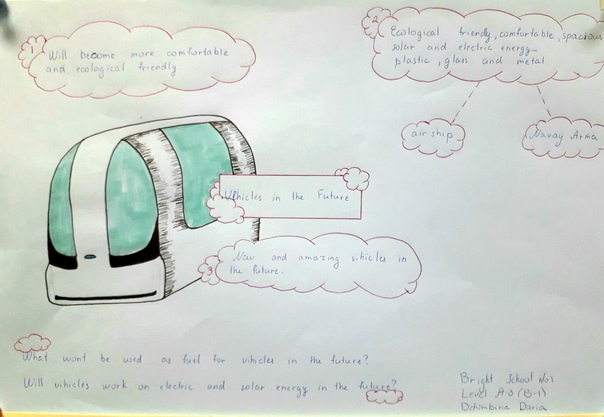 1
Will become more comfortable
and ecological friendly
2
Ecological friendy, comfortable, spacious
solar and electric energy
plastic, glass and metal
air ship
Navay Arma
Vihicles in the Future
3
New and amazing vihicles in
the future.
What wont be used as fuel for vihicles in the future?
Will vihicles work on electric and solar energy in the future?
Bright School No1
Level A-0 (B-1)
Daria